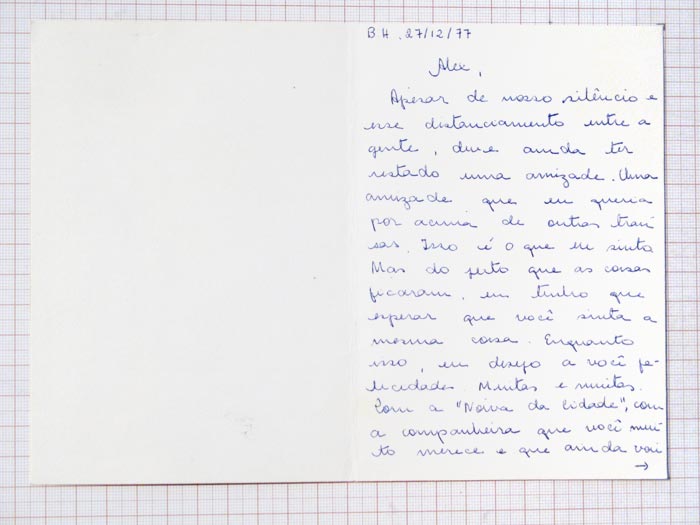 B.H. 27/12/77
Alex,
Apesar de nosso silêncio e
esse distanciamento entre a
gente, deve ainda ter
restado uma amizade. Uma
amizade que eu queria
por acima de outras tran-
sas. Isso é o que eu sinto.
Mas do jeito que as coisas
ficaram, eu tenho que
esperar que você sinta a
mesma coisa. Enquanto
isso, eu desejo a você fe-
licidades. Muitas e muitas.
Com a "Noiva da Cidade", com
a companheira que você mui-
to merece e que ainda vai
→